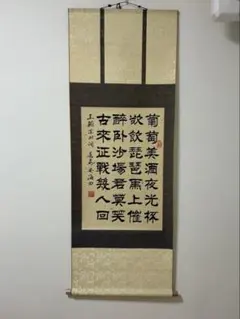 葡萄美酒夜光杯
欲飲琵琶馬上催
醉卧沙場君莫笑
古來征戰幾人回